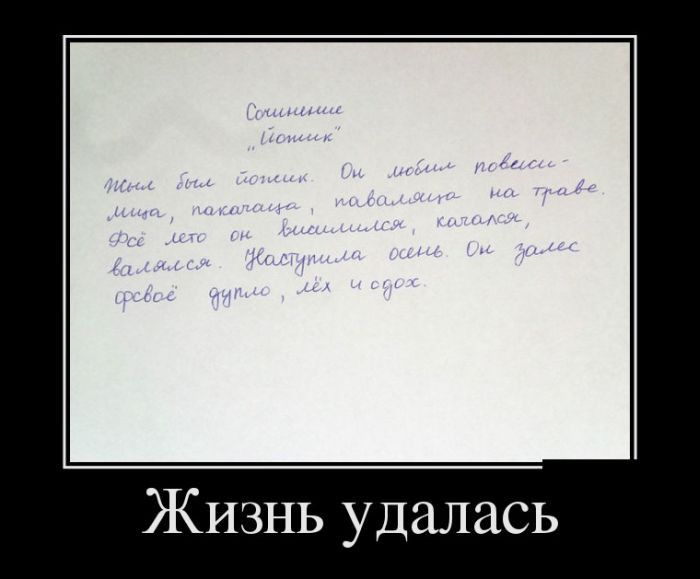 Сочинение
„Йожик"
Жыл был йожик. Он любил повесили-
лица, пакачаца, паваляца на траве.
Фсё лето он висилился, качался,
валялся. Наступила осень. Он залес
фсваё дупло, лёх и сдох.
Жизнь удалась